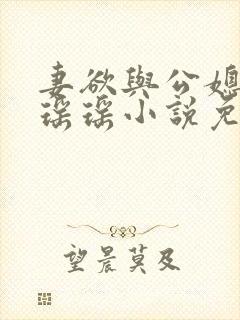 妻欲與公媳
瑶瑶小說免
望晨莫及